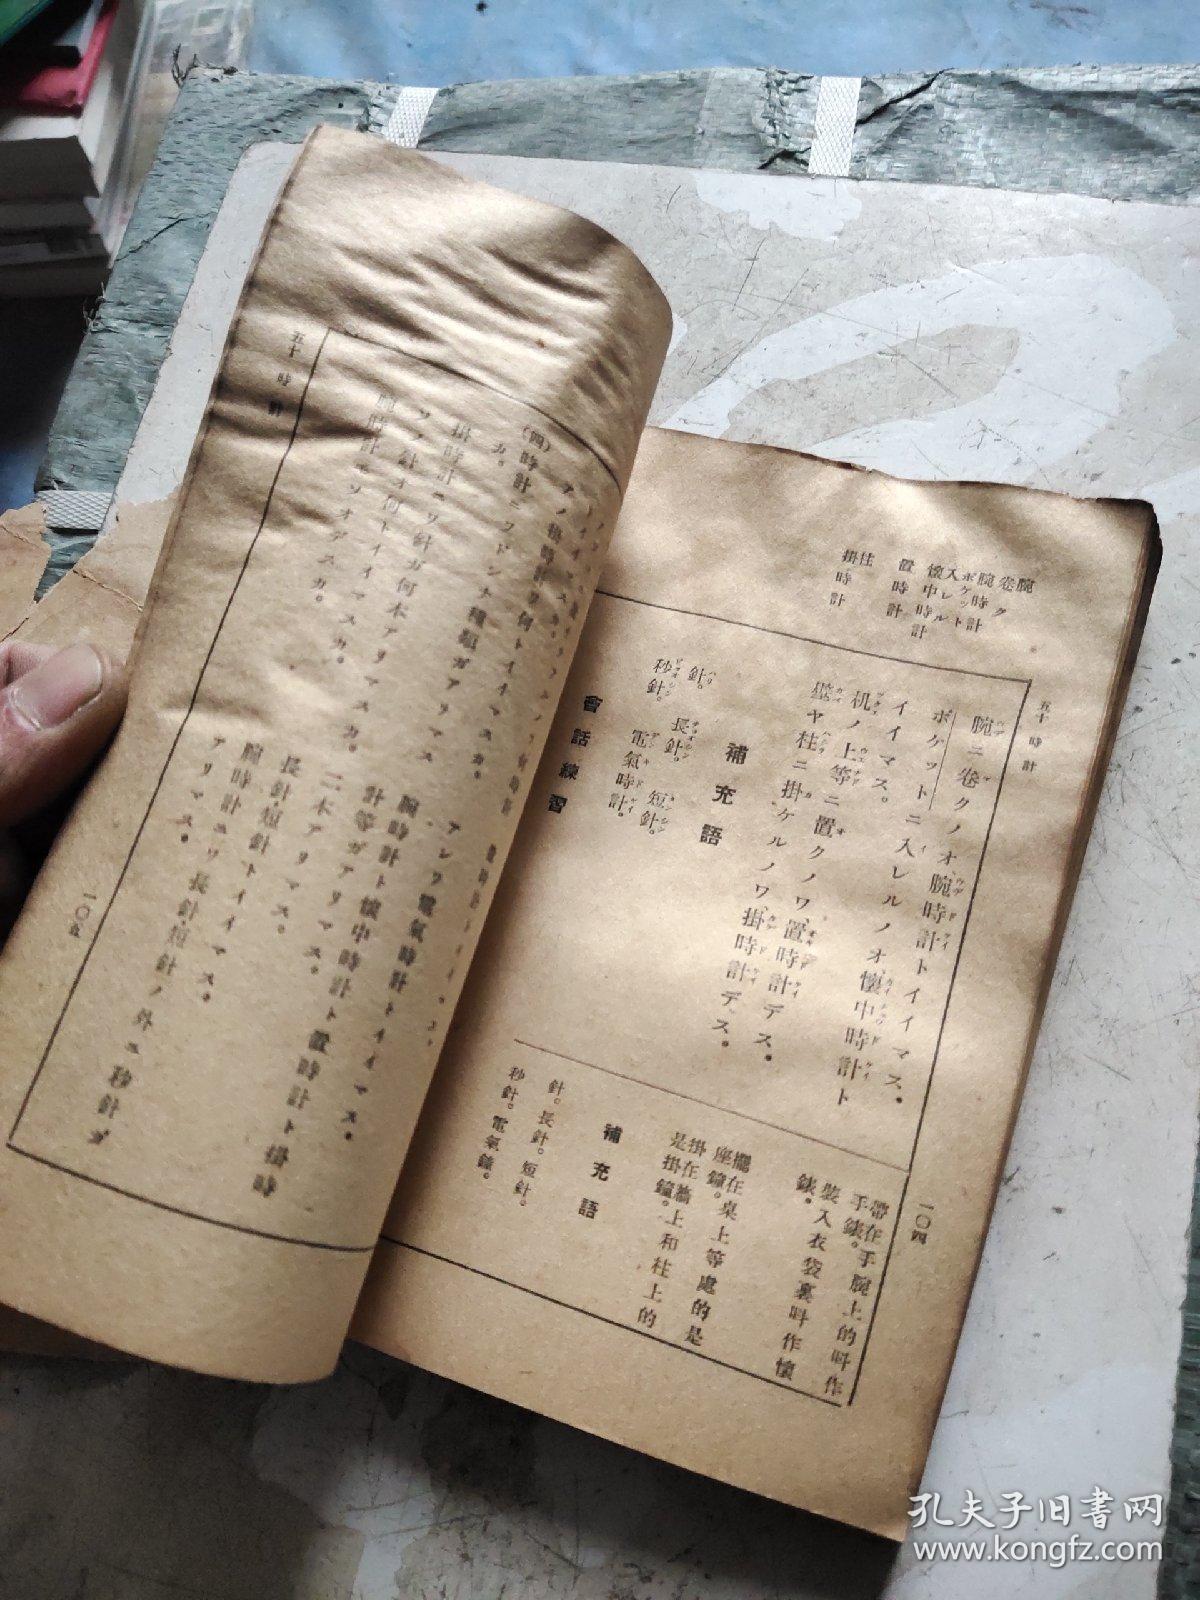 五十 時計
一〇四
腕
卷ク
腕時計
ポケット
入レル
懷中時計
置時計
柱
掛時計
腕ニ卷クノオ腕時計トイイマス。
ポケットニ入レルノオ懷中時計ト
イイマス。
机ノ上等ニ置クノワ置時計デス。
壁ヤ柱ニ掛ケルノワ掛時計デス。
補充語
針。長針。短針。
秒針。電氣時計。
會話練習
帶在手腕上的叫作
手錶。
裝入衣袋裏叫作懷
錶。
擺在桌上等處的是
座鐘。
掛在牆上和柱上的
是掛鐘。
補充語
針。長針。短針。
秒針。電氣鐘。
アレワ電氣時計トイイマス。
(四)時計ニワドンナ種類ガアリマス
カ。
腕時計ト懷中時計ト置時計ト掛時
計等ガアリマス。
掛時計ニワ針ガ何本アリマスカ。
二本アリマス。
ソノ針オ何トイイマスカ。
長針、短針トイイマス。
腕時計ニワ長針、短針ノ外ニ秒針ガ
アリマス。
五十 時計
一〇五
孔夫子旧书网
www.kongfz.com